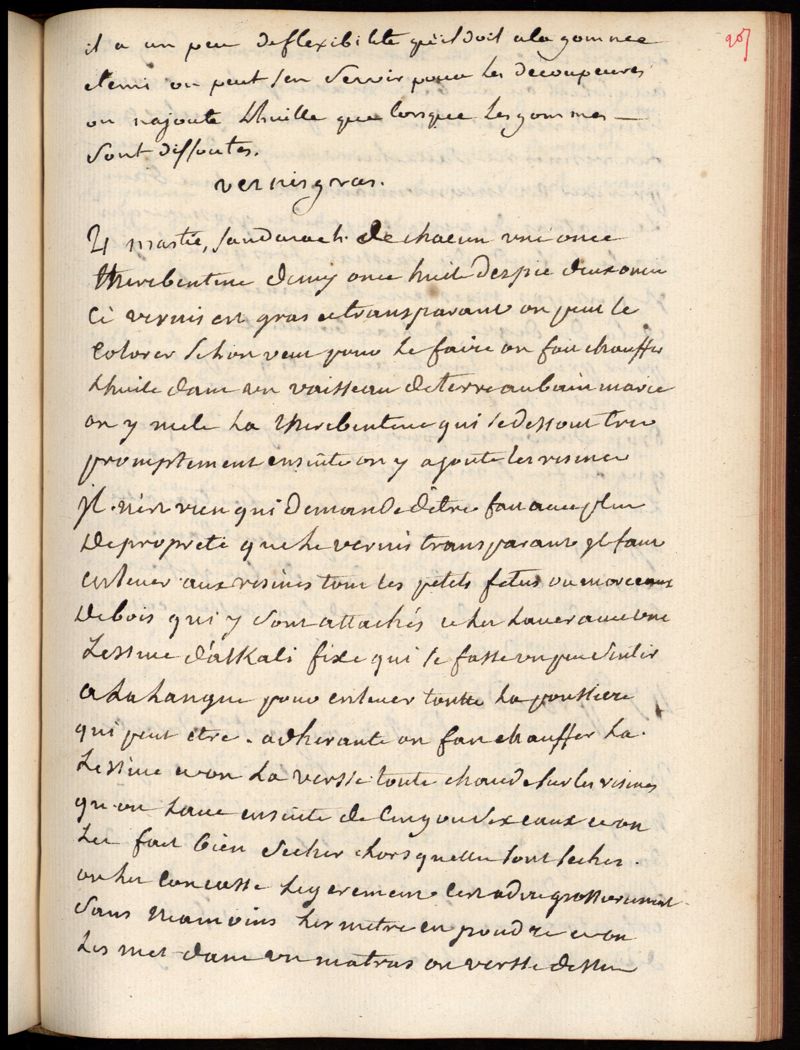 il a un peu deflexibilité quil doit ala gomme
elemi on peut sen servir pour les decoupeures
on najoute Lhuille que lorsque les gommes
sont dissoutes.
vernis gras.
mastic, sandarach. de chacun une once
therebentine demy once huile despic deux once
Ce vernis est gras et transparant on peut le
colorer silon veut pour le faire on fait chauffer
Lhuile dans un vaisseau de terre au bain marie
on y mele La therebentine qui se dessout tres
promptement ensuite on y ajoute les resines
jl n'est rien qui demande d'être fait avec plus
de propreté que le vernis transparant jl faut
enlever aux resines tout les petits fetus ou morceaux
de bois qui y sont attachés et les laver avec une
Lessive d'alkali fixe qui se fasse un peu sentir
a La Langue pour enlever toutte La poussiere
qui peut etre adherante on fait chauffer La
Lessive et on La versse toute chaude sur les resines
qu'on Lave ensuite de cinq ou six eaux et on
Les fait bien secher Lorsquelle sont seches
on les concasse legerement Cest adire grossierement
sans neamoins Les metre en poudre et on
Les met dans un matras on versse dessus